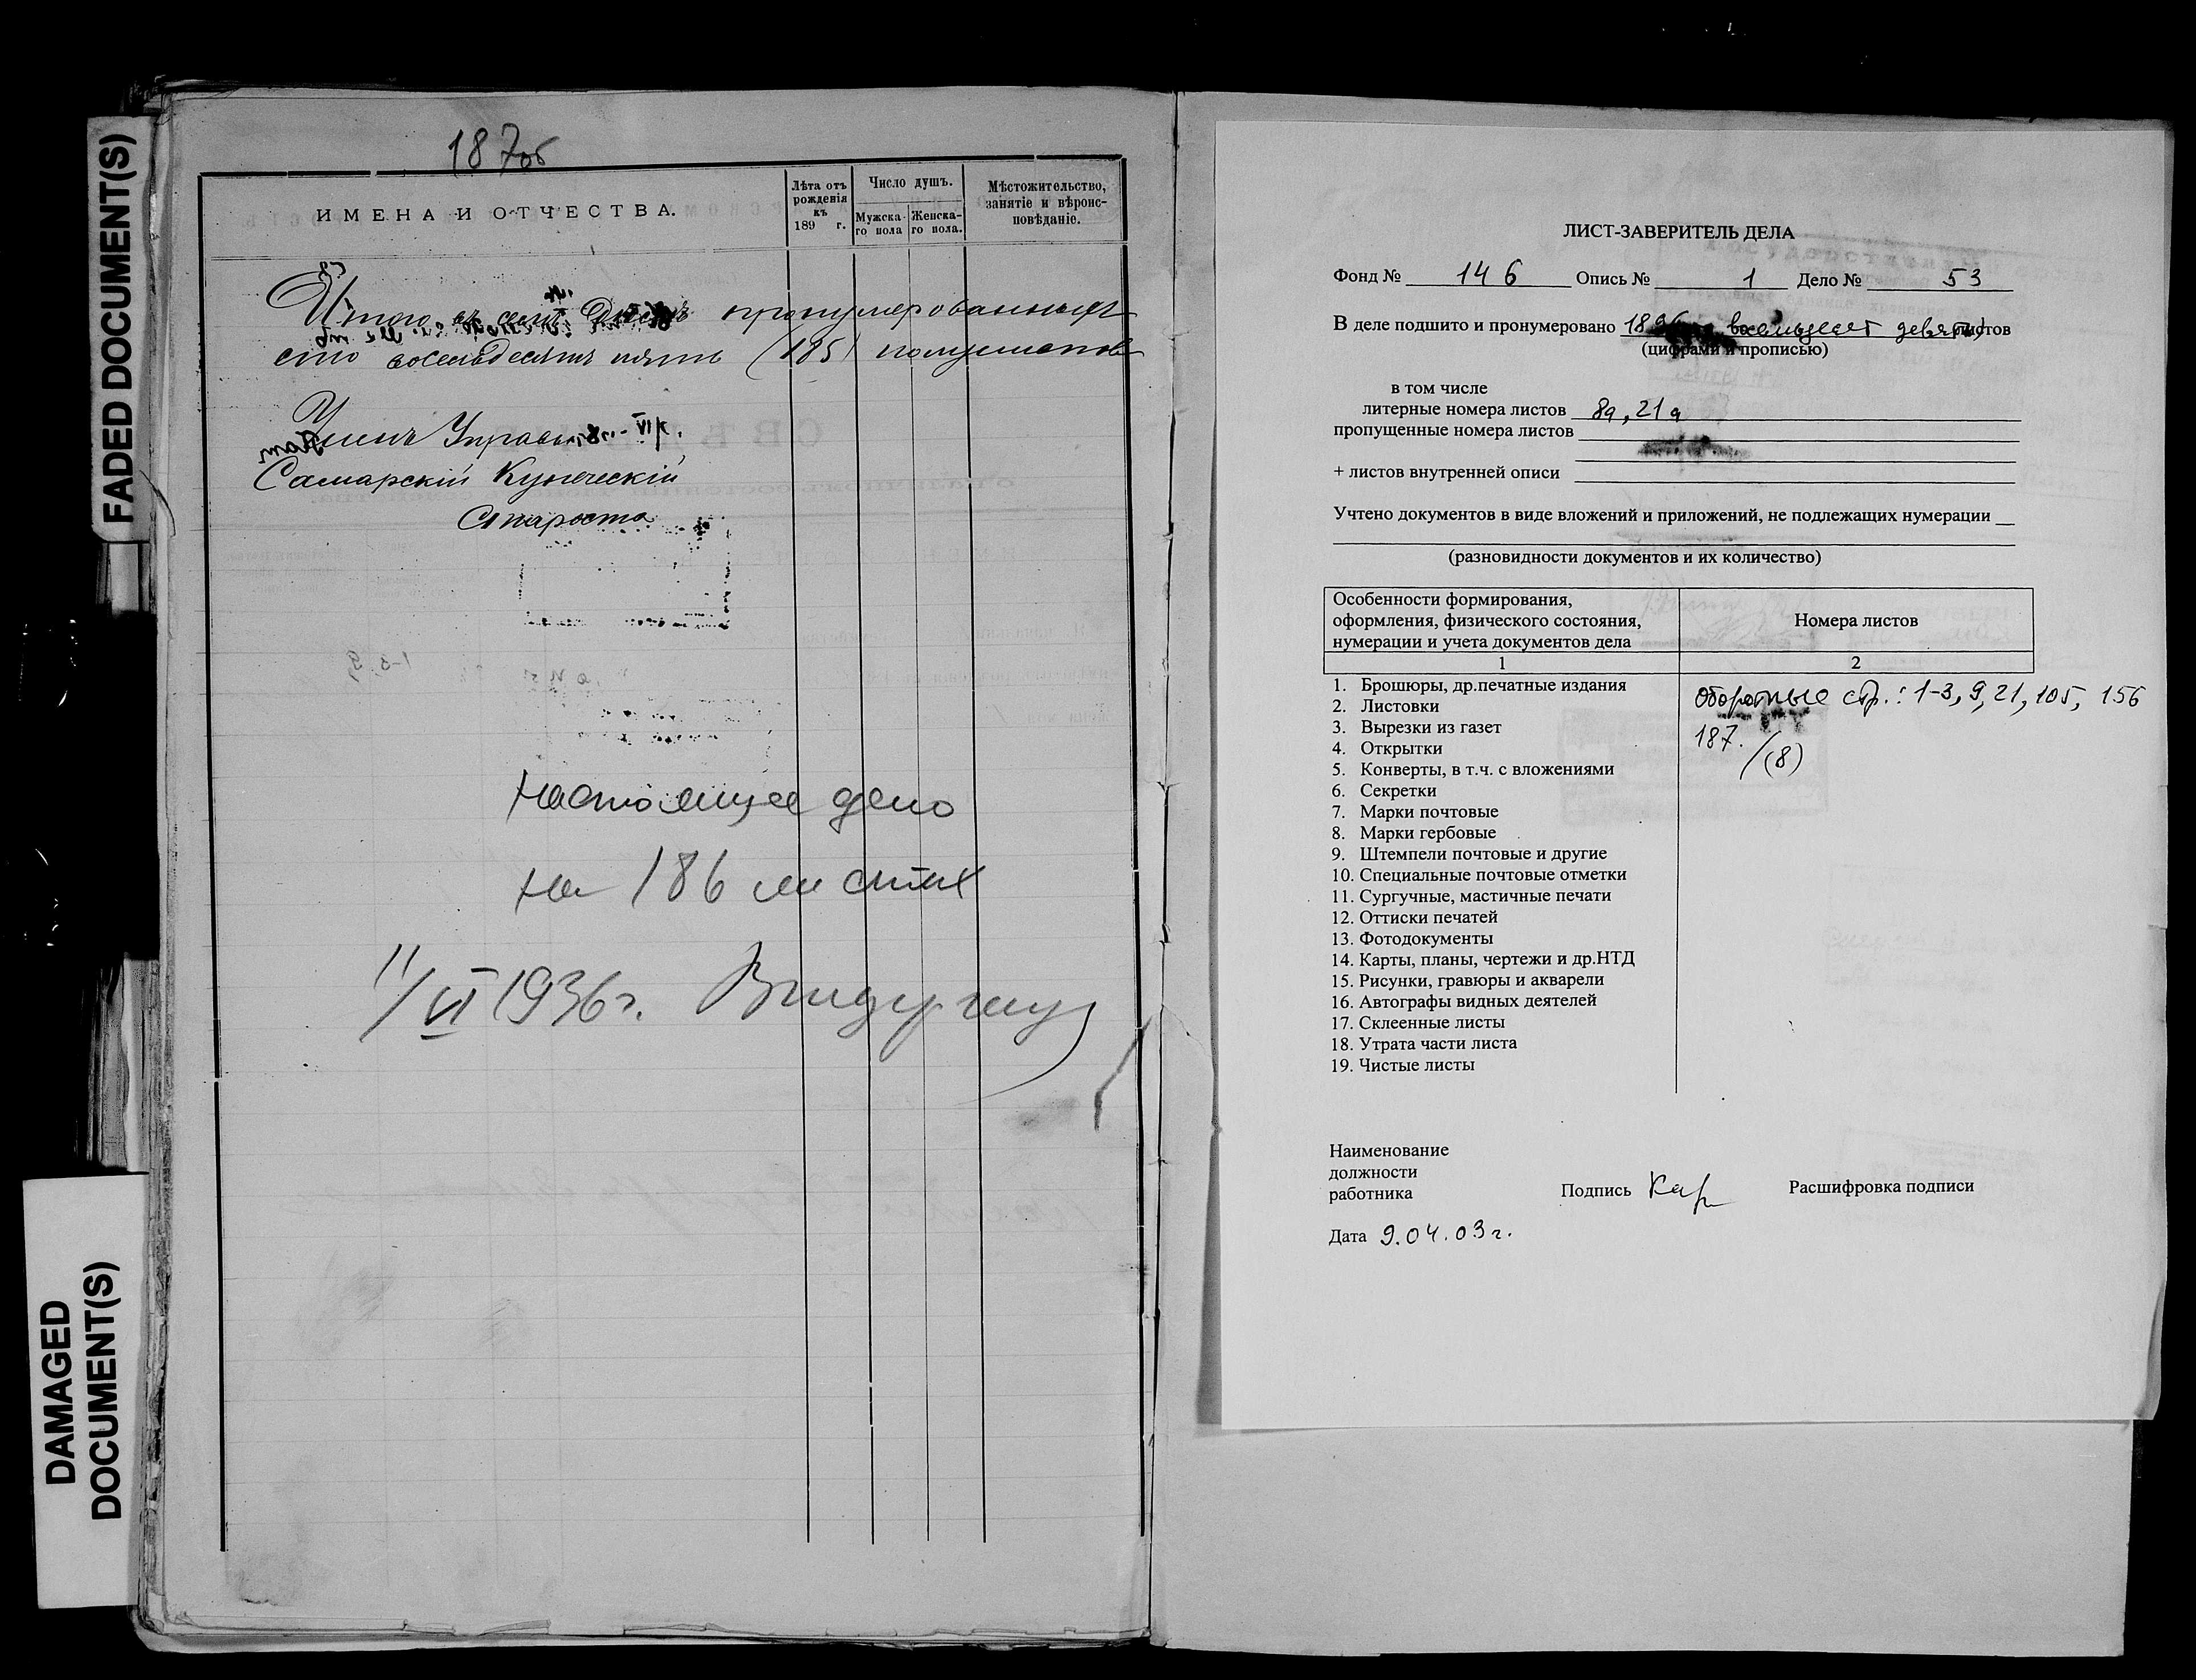 FADED DOCUMENT(S)
DAMAGED
DOCUMENT(S)
187об
ИМЕНА И ОТЧЕСТВА.
Лѣта отъ
рожденія
къ
189 г.
Число душъ.
Мужска-
го пола
Женска-
го пола.
Мѣстожительство,
занятіе и вѣроис-
повѣданіе.
Итого въ семъ пронумерованныхъ
сто восемьдесятъ пять (185) полулистовъ
Членъ Управы
Самарскій Купеческій
Староста
настоящее дело
на 186 листах
11/VI 1936 г.
ЛИСТ-ЗАВЕРИТЕЛЬ ДЕЛА
Фонд № 146 Опись № 1 Дело № 53
В деле подшито и пронумеровано восемьдесят девять) листов
(цифрами и прописью)
в том числе
литерные номера листов 8а, 21а
пропущенные номера листов
+ листов внутренней описи
Учтено документов в виде вложений и приложений, не подлежащих нумерации
(разновидности документов и их количество)
Особенности формирования,
оформления, физического состояния,
нумерации и учета документов дела
Номера листов
1 2
1. Брошюры, др.печатные издания
2. Листовки
3. Вырезки из газет
4. Открытки
5. Конверты, в т.ч. с вложениями
6. Секретки
7. Марки почтовые
8. Марки гербовые
9. Штемпели почтовые и другие
10. Специальные почтовые отметки
11. Сургучные, мастичные печати
12. Оттиски печатей
13. Фотодокументы
14. Карты, планы, чертежи и др.НТД
15. Рисунки, гравюры и акварели
16. Автографы видных деятелей
17. Склеенные листы
18. Утрата части листа
19. Чистые листы
Оборотные стр.: 1-3, 9, 21, 105, 156
187.
/(8)
Наименование
должности
работника
Подпись Кар Расшифровка подписи
Дата 9.04.03г.